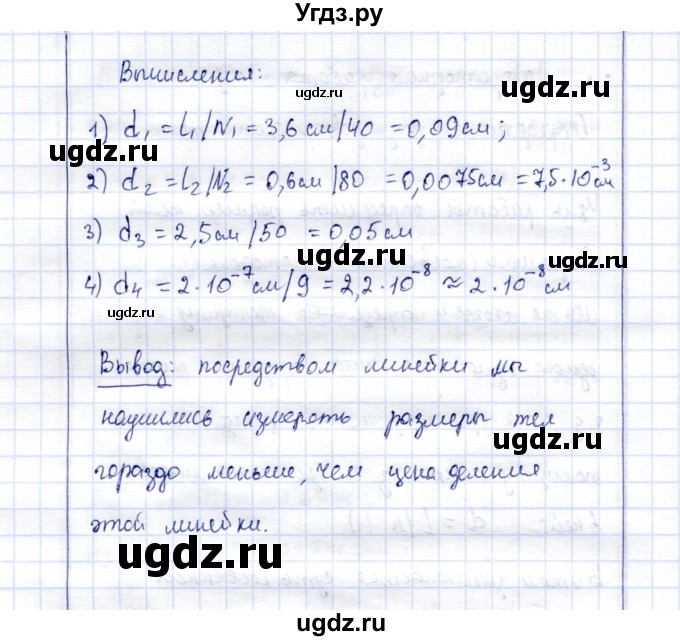 Угдз.ру
Вычисления:
ugdz.ru
ugdz.ru
1) d₁ = L₁/N₁ = 3,6 см/40 = 0,09 см;
ugdz.ru
2) d₂ = L₂/N₂ = 0,6 см/80 = 0,0075 см = 7,5·10⁻³ см
3) d₃ = 2,5 см/50 = 0,05 см
ugdz.ru
4) d₄ = 2·10⁻⁷ см/9 = 2,2·10⁻⁸ ≈ 2·10⁻⁸ см
ugdz.ru
Вывод: посредством линейки мы
научились измерять размеры тел
ugdz.ru
гораздо меньше, чем цена деления
этой линейки.
ugdz.ru
ugdz.ru
Угдз.ру